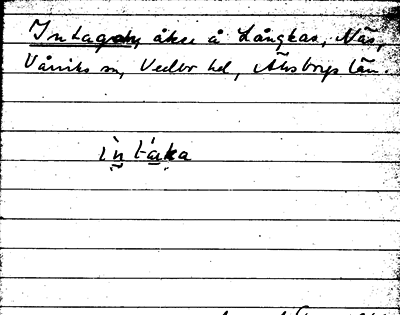 Intagan, åker å Långkas, Näs,
Vårviks sn, Vedbo hd, Älvsborgs län.
ìn táka